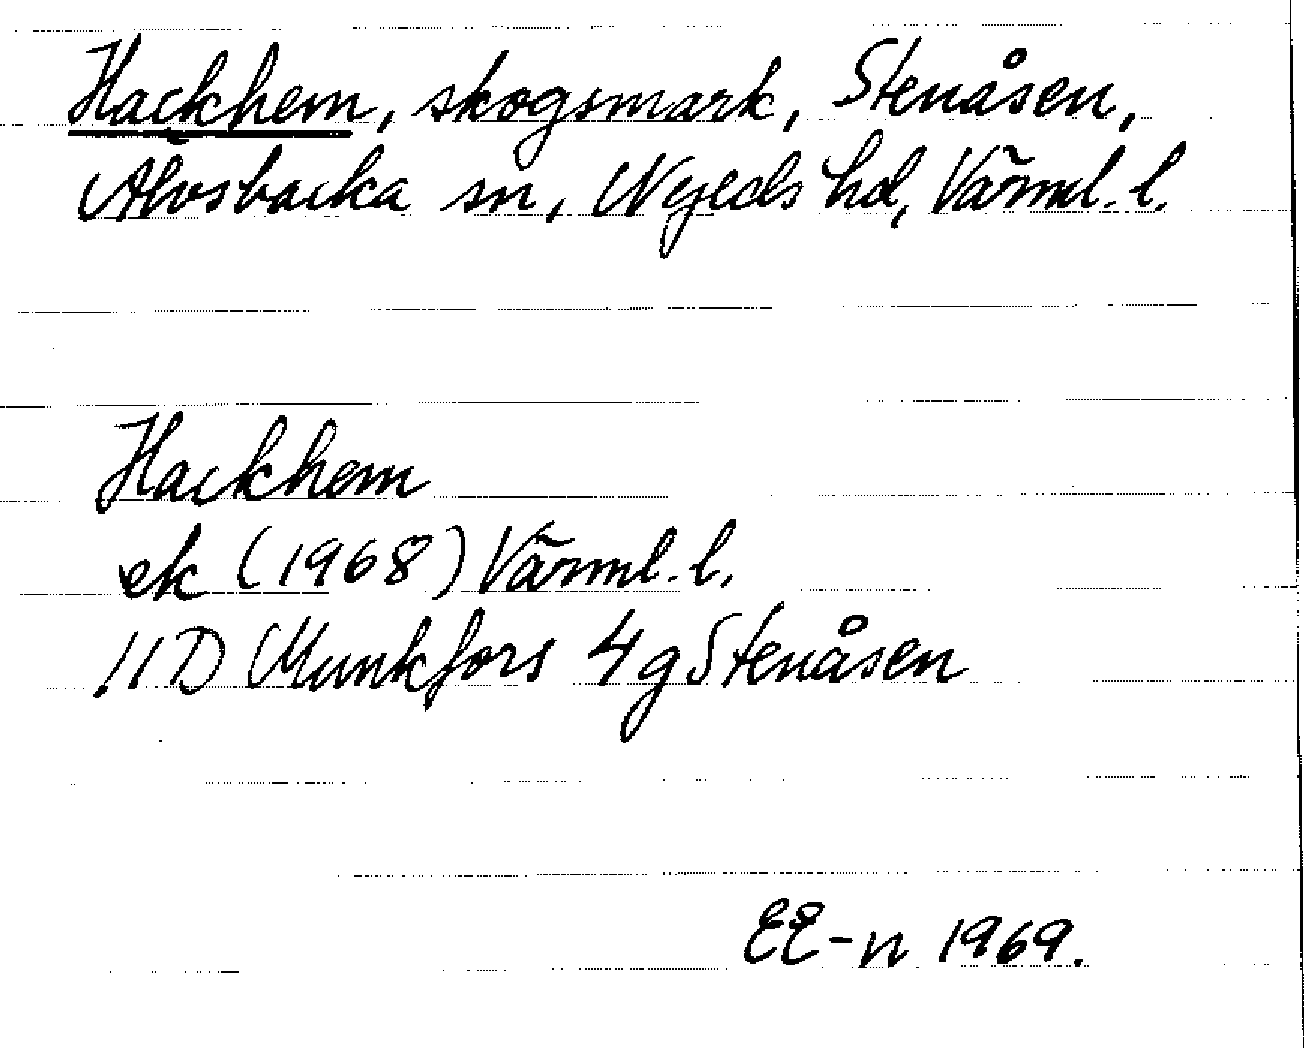 Hackhem, skogsmark, Stenåsen,
Älvsbacka sn, Nyeds hd, Värml. l.
Hackhem
ek (1968) Värml. l.
11D Munkfors 4g Stenåsen
EE-n 1969.